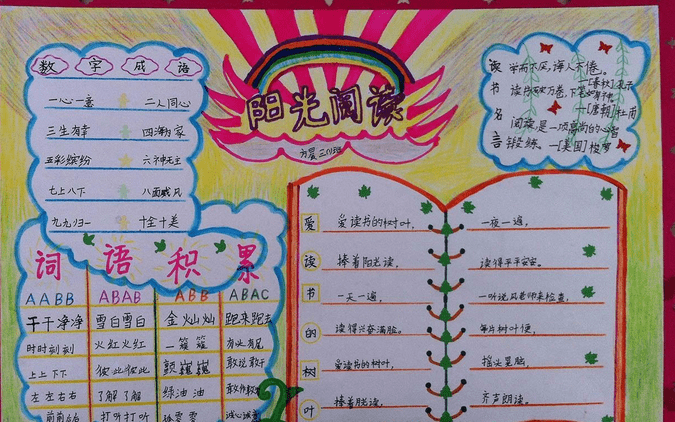 数字成语
一心一意 二人同心
三生有幸 四海为家
五彩缤纷 六神无主
七上八下 八面威风
九九归一 十全十美
阳光阅读
方晨三(1)班
读书名言
学而不厌,诲人不倦。
—[春秋]孔子
读书破万卷,下笔如有神。
—[唐朝]杜甫
阅读,是一项高尚的心智
锻练。—[美国]梭罗
词语积累
AABB ABAB ABB ABAC
干干净净 雪白雪白 金灿灿 跑来跑去
时时刻刻 火红火红 一簇簇 有头有尾
上上下下 彼此彼此 颤巍巍 敢说敢干
左左右右 了解了解 绿油油
打听打听 诚心诚意
爱读书的树叶
爱读书的树叶,
捧着阳光读,
一天一遍,
读得兴奋满脸。
爱读书的树叶,
捧着 读,
一夜一遍,
读得平平安安。
一听说风老师来检查,
每片树叶便,
摇头晃脑,
齐声朗读。